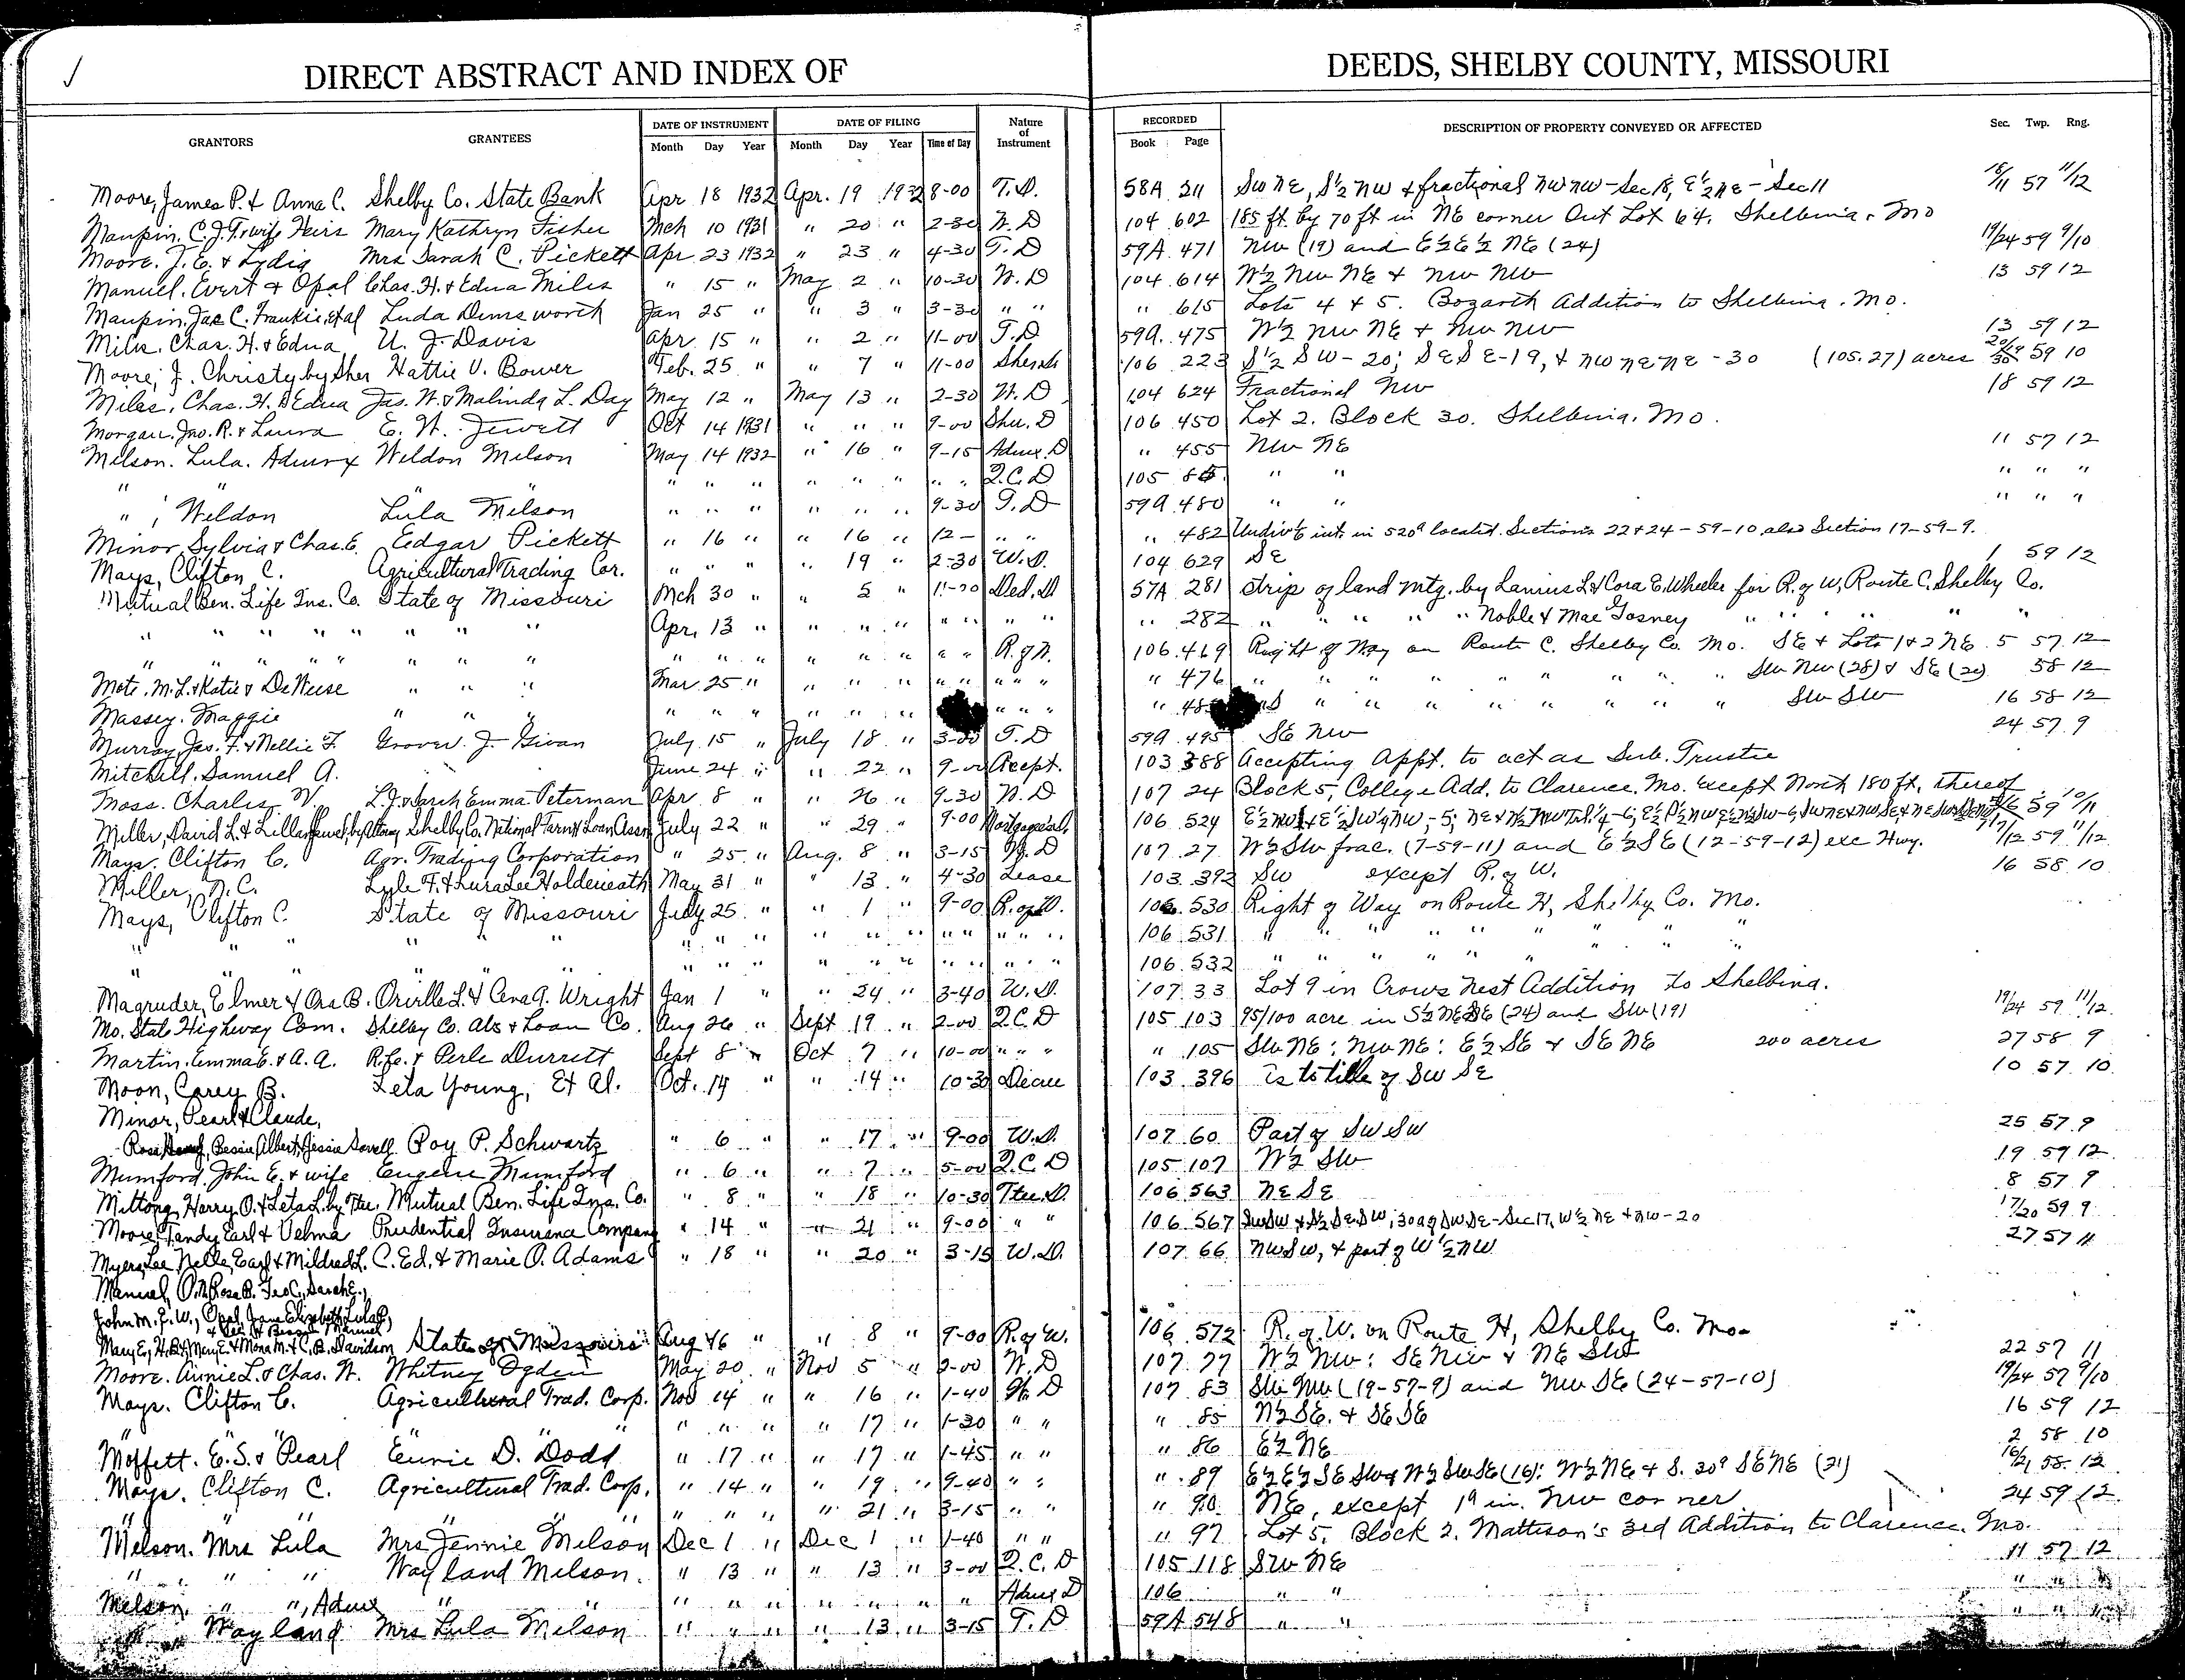 DIRECT ABSTRACT AND INDEX OF DEEDS, SHELBY COUNTY, MISSOURI
GRANTORS GRANTEES DATE OF INSTRUMENT DATE OF FILING Nature of Instrument RECORDED DESCRIPTION OF PROPERTY CONVEYED OR AFFECTED Sec. Twp. Rng.
Month Day Year Month Day Year Time of Day Book Page
Moore, James P. & Anna C. Shelby Co. State Bank Apr 18 1932 Apr. 19 1932 8-00 T.D. 58A 211 SW NE, S½ NW & fractional NW NW - Sec 18, E½ NE - Sec 11 18/11 57 11/12
Maupin, C.J.T. wife Heirs Mary Kathryn Fisher Mch 10 1931 " 20 " 2-30 W.D 104 602 185 ft. by 70 ft in NE corner Out Lot 64, Shelbina, Mo
Moore, J. E. & Lydia Mrs Sarah C. Pickett Apr 23 1932 " 23 " 4-30 T.D 59A 471 NW (19) and E½ E½ NE (24) 19/24 59 9/10
Manuel, Evert & Opal Chas. H. & Edna Miles " 15 " May 2 " 10-30 W.D 104 614 W½ NW NE & NW NW 13 59 12
Maupin, Jas C. Frankie, et al Luda Demsworth Jan 25 " " 3 " 3-30 " " " 615 Lots 4 & 5. Bozarth Addition to Shelbina, Mo.
Miles, Chas. H. & Edna U. J. Davis Apr. 15 " " 2 " 11-00 T.D 59A 475 W½ NW NE & NW NW 13 59 12
Moore, J. Christy by Sher Hattie V. Bower Feb. 25 " " 7 " 11-00 106 223 S½ SW - 20; SE SE - 19, & NW NE NE - 30 (105.27) acres 59 10
Miles, Chas. H. & Edna Jas. W. & Malinda L. Day May 12 " May 13 " 2-30 W.D 104 624 Fractional NW 18 59 12
Morgan, Jno. R. & Laura E. W. Jewett Oct 14 1931 " " " 9-00 Shu. D 106 450 Lot 2, Block 30, Shelbina, Mo.
Melson, Lula, Admrx Weldon Melson May 14 1932 " 16 " 9-15 Admx. D " 455 NW NE 11 57 12
" " " " " " " " " " Q.C.D 105 " " " " "
" , Weldon Lula Melson " " " " " " 9-30 T.D 59A 480 " " " " "
Minor, Sylvia & Chas. E. Edgar Pickett " 16 " " 16 " 12- " " " 482 Undiv ⅙ int. in 520 a located Sections 22 & 24-59-10, also Section 17-59-9.
Mays, Clifton C. Agricultural Trading Cor. " " " " 19 " 2-30 W.D. 104 629 SE 1 59 12
Mutual Ben. Life Ins. Co. State of Missouri Mch 30 " " 5 " 11-00 Ded. D 57A 281 Strip of land mtg. by Lanius L. & Cora E. Wheeler for R. of W. Route C. Shelby Co.
" " " " " " " " Apr. 13 " " " " " " " " " 282 " " " " " Noble & Mae Gosney " " " " "
" " " " " " " " " " " " " " " " R. of W. 106 469 Right of Way on Route C. Shelby Co. Mo. SE & Lots 1 & 2 NE 5 57 12
Mote, M. L. & Katie & DeWeese " " " Mar. 25 " " " " " " " " " 476 " " " " " " " SW NW (28) & SE (20) 58 12
Massey, Maggie " " " " " " " " " " " " " " " " " " " SW SW 16 58 12
Murray, Jas. F. & Nellie F. Grover J. Givan July 15 " July 18 " 3-00 T.D 59A 495 SE NW 24 57 9
Mitchell, Samuel A. June 24 " " 22 " 9-00 Acept. 103 388 Accepting Appt. to act as Sub. Trustee
Moss, Charles W. L. J. & Sarah Emma Peterman Apr 8 " " 26 " 9-30 W.D 107 24 Block 5, College Add. to Clarence, Mo. except North 180 ft. thereof
Miller, David L. & Lilla Shelby Co. National Farm Loan Assn July 22 " " 29 " 9-00 106 524 59 10/11
Mays, Clifton C. Agr. Trading Corporation " 25 " Aug. 8 " 3-15 W.D 107 27 W½ SW frac. (7-59-11) and E½ SE (12-59-12) exc Hwy. 7/12 59 11/12
Miller, N.C. Lyle F. & Lura Lee Holdeneath May 31 " " 13 " 4-30 Lease 103 392 SW except R. of W. 16 58 10
Mays, Clifton C. State of Missouri July 25 " " 1 " 9-00 R. of W. 106 530 Right of Way on Route H, Shelby Co. Mo.
" " " " " " " " " " " " " " " " 106 531 " " " " " " " "
" " " " " " " " " " " " " " " " 106 532 " " " " " " " "
Magruder, Elmer & Ora B. Orville L. & Cena A. Wright Jan 1 " " 24 " 3-40 W.D. 107 33 Lot 9 in Crows Nest Addition to Shelbina.
Mo. State Highway Com. Shelby Co. Abs & Loan Co. Aug 26 " Sept 19 " 2-00 Q.C.D 105 103 95/100 acre in S½ NE SE (24) and SW (19) 19/24 59 11/12
Martin, Emma E. & A. A. R. Co. & Perle Durrett Sept 8 " Oct 7 " 10-00 " " " " 105 SW NE: NW NE: E½ SE & SE NE 200 acres 27 58 9
Moon, Carey B. Leta Young, Et Al. Oct. 14 " " 14 " 10-30 Decree 103 396 As to title of SW SE 10 57 10
Minor, Pearl & Claude,
Bessie Albert, Jessie Sewell Roy P. Schwartz " 6 " " 17 " 9-00 W.D. 107 60 Part of SW SW 25 57 9
Mumford, John E. & wife Eugene Mumford " 6 " " 7 " 5-00 Q.C.D 105 107 W½ SW 19 59 12
Miltong, Harry O. & Leta L. by Tte. Mutual Ben. Life Ins. Co. " 8 " " 18 " 10-30 Ttee. D. 106 563 NE SE 8 57 9
Moore, Tandy Earl & Velma Prudential Insurance Company " 14 " " 21 " 9-00 " " 106 567 SW SW & S½ SE SW, 30a of SW SE - Sec 17, W½ NE & NW - 20 17/20 59 9
Myers, Lee Nelle, Earl & Mildred L. C. Ed. & Marie O. Adams " 18 " " 20 " 3-15 W.D. 107 66 NW SW, & part of W½ NW 27 57 11
Manuel, O.N. Rosa B. Geo C., Sarah E.,
John M. J. W., Opal, Jane Elizabeth, Lula P,
Mary E., H. B. & Mary E. & Mona M. & C. B. Davidson State of Missouri Aug 16 " " 8 " 9-00 R. of W. 106 572 R. of W. on Route H, Shelby Co. Mo.
Moore, Annie L. & Chas. W. Whitney Ogden May 20 " Nov 5 " 2-00 W.D 107 77 W½ NW: SE NW & NE SW 22 57 11
Mays, Clifton C. Agricultural Trad. Corp. Nov 14 " " 16 " 1-40 W.D 107 83 SW NW (19-57-9) and NW SE (24-57-10) 19/24 57 9/10
" " " " " " " " 17 " 1-30 " " " 85 N½ SE. & SE SE 16 59 12
Moffett, E. S. & Pearl Eunice D. Dodd " 17 " " 17 " 1-45 " " " 86 E½ NE 2 58 10
Mays, Clifton C. Agricultural Trad. Corp. " 14 " " 19 " 9-40 " " " 89 E½ E½ SE SW & W½ SW SE (16): W½ NE & S. 30a SE NE (21) 16/21 58 12
" " " " " " " " 21 " 3-15 " " " 90 NE, except 1a in NW corner 24 59 12
Melson, Mrs Lula Mrs Jennie Melson Dec 1 " Dec 1 " 1-40 " " " 97 Lot 5, Block 2, Mattison's 3rd Addition to Clarence, Mo.
" " " Wayland Melson " 13 " " 13 " 3-00 Q.C.D 105 118 SW NE 11 57 12
Melson, " ", Admx " " " " " " " " " Admx D 106 " " " " "
Wayland Mrs Lula Melson " " " " 13 " 3-15 T.D 59A 548 " " " " "